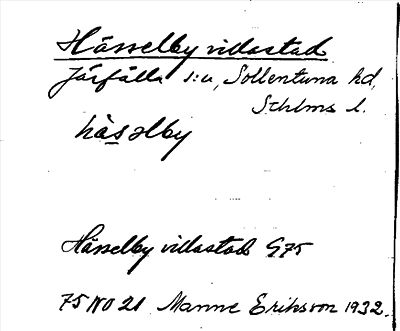 Hässelby villastad
Järfälla s:n, Sollentuna hd,
Sthlms l.
hàsəlby
Hässelby villastad G75
75 NO 21 Manne Eriksson 1932.